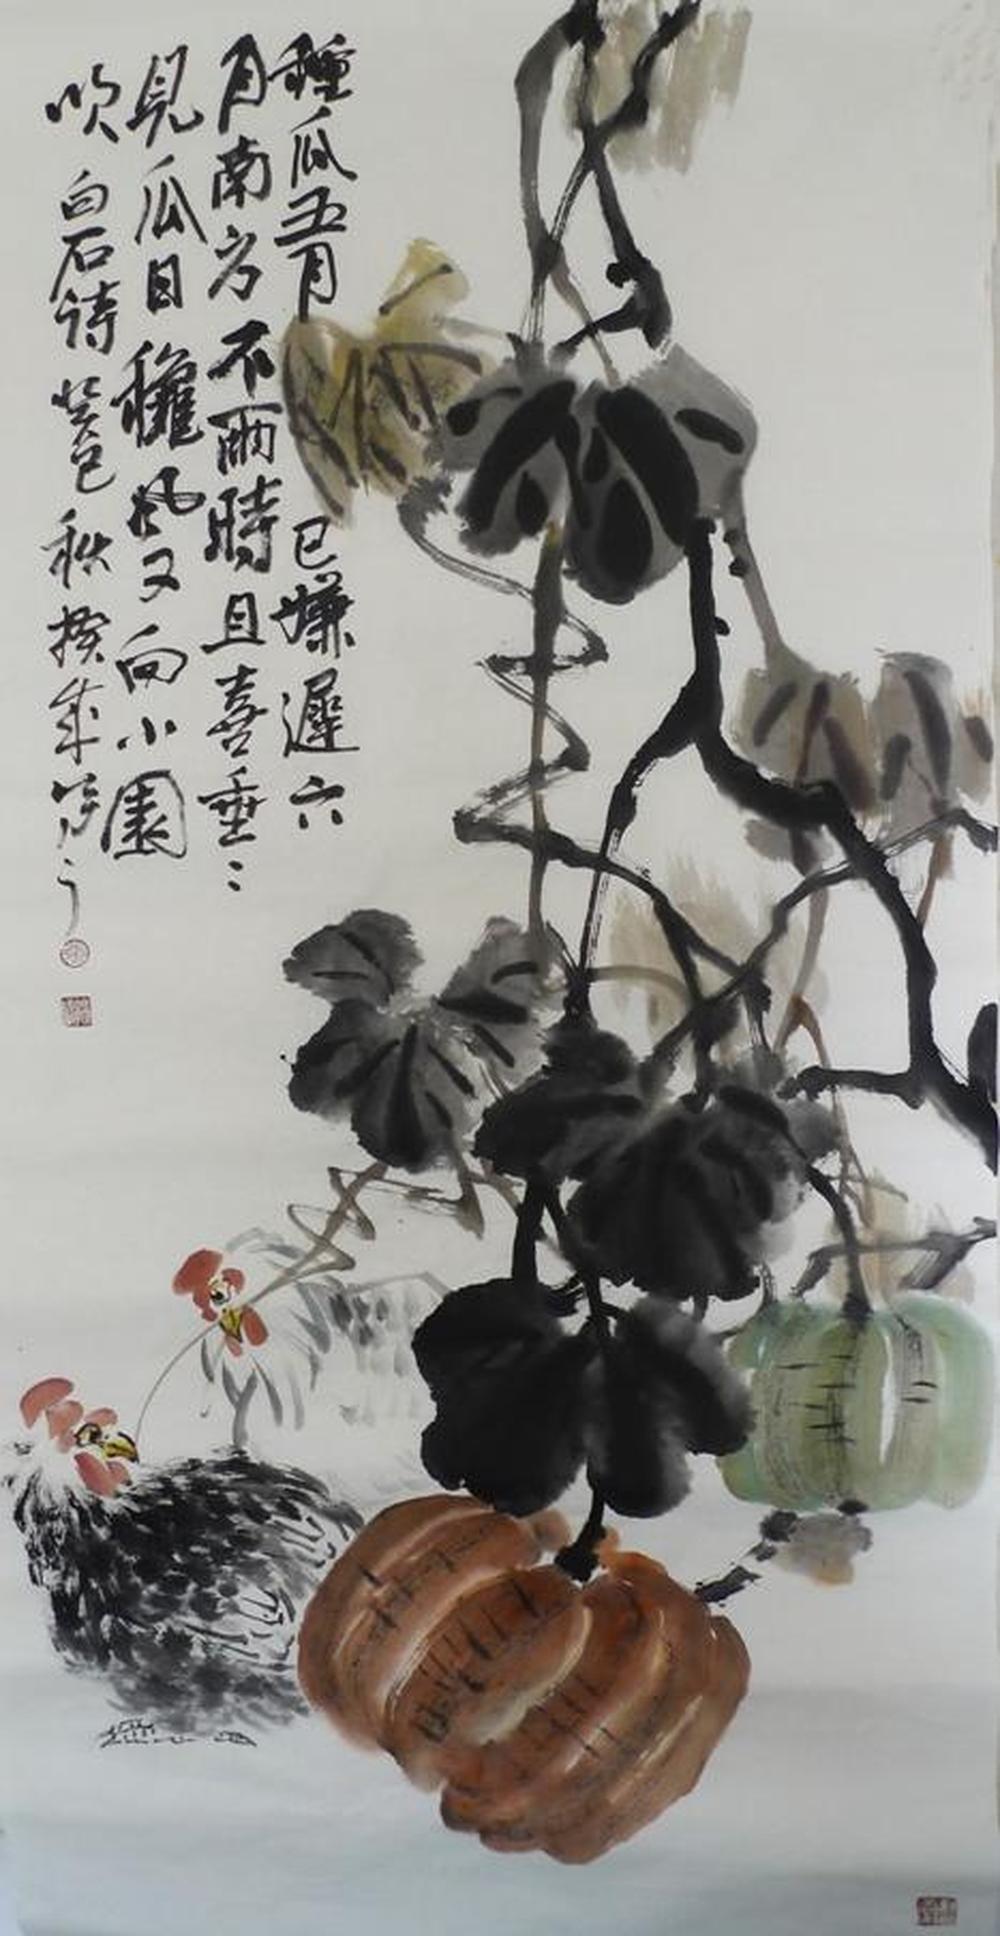 種瓜五月已嫌遲六
月南方不雨時且喜垂〻
見瓜日穐風又向小園
吹白石詩癸巳秋揆